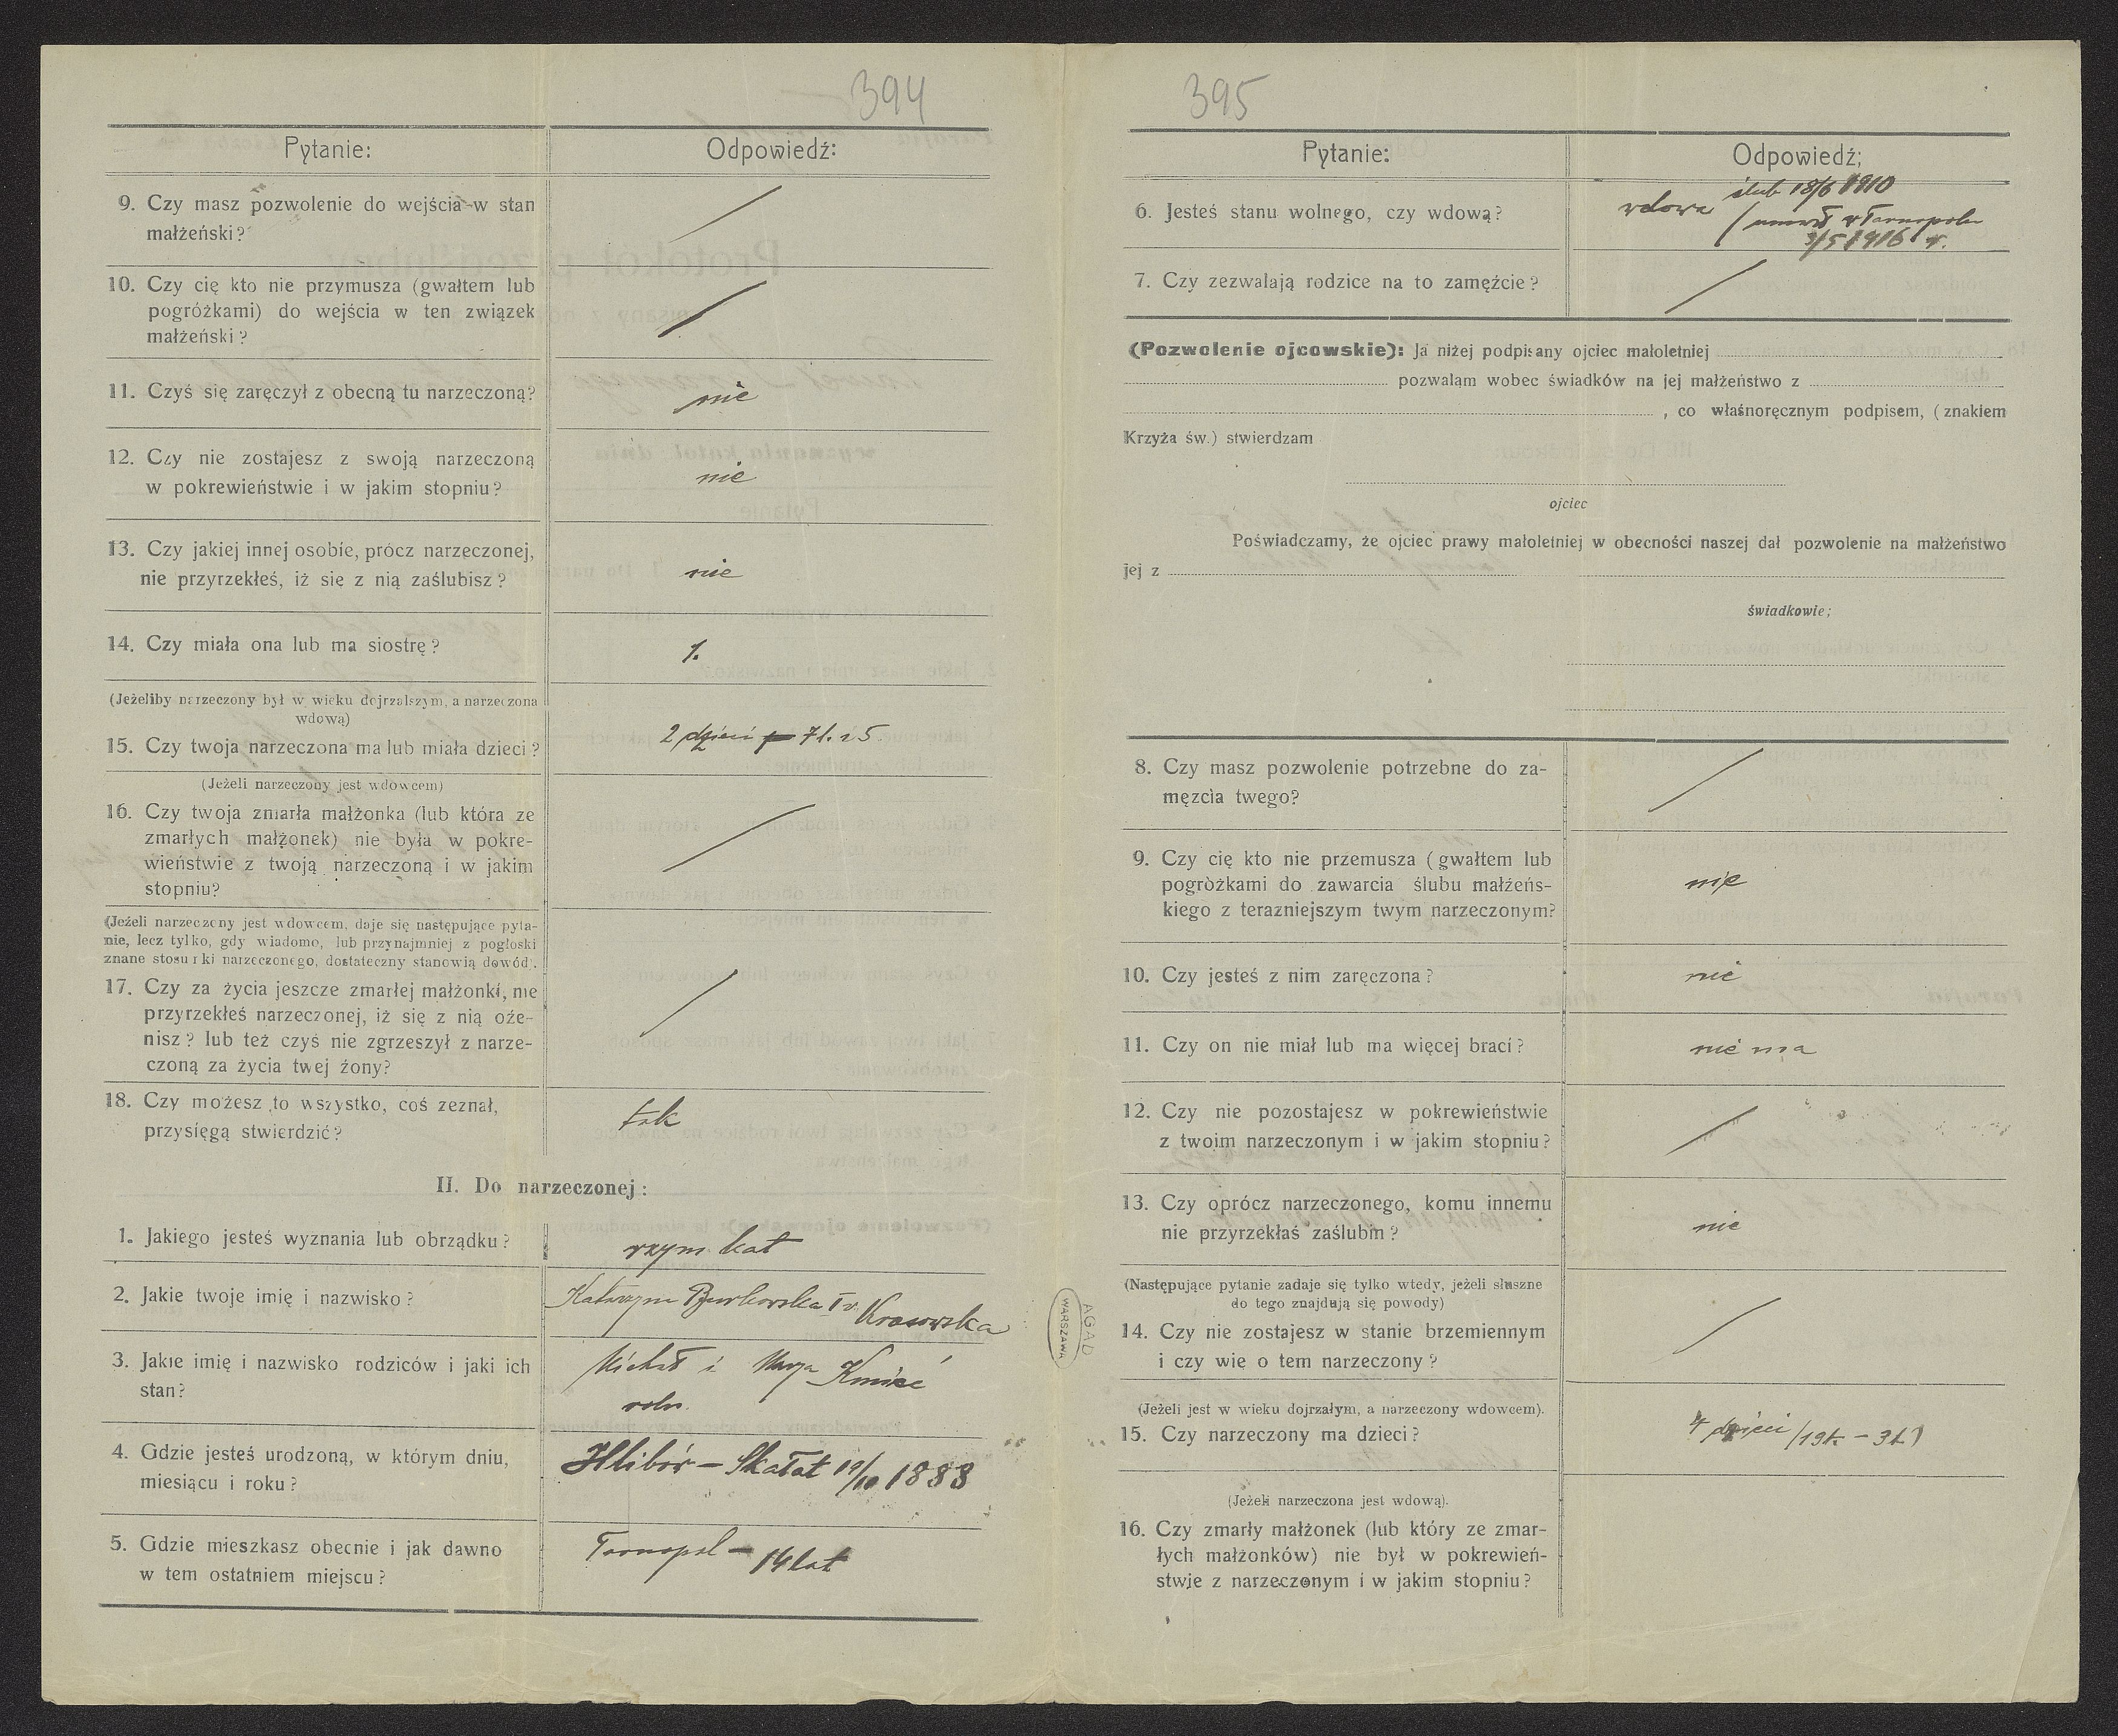 394
Pytanie:
Odpowiedź:
9. Czy masz pozwolenie do wejścia w stan
małżeński?
10. Czy cię kto nie przymusza (gwałtem lub
pogróżkami) do wejścia w ten związek
małżeński?
11. Czyś się zaręczył z obecną tu narzeczoną?
nie
12. Czy nie zostajesz z swoją narzeczoną
w pokrewieństwie i w jakim stopniu?
nie
13. Czy jakiej innej osobie, prócz narzeczonej,
nie przyrzekłeś, iż sie z nią zaślubisz?
nie
14. Czy miała ona lub ma siostrę?
1.
(Jeżeliby narzeczony był w wieku dojrzalszym, a narzeczona
wdową)
15. Czy twoja narzeczona ma lub miała dzieci?
2 dzieci 7 l. i 5
(Jeżeli narzeczony jest wdowcem)
16. Czy twoja zmarła małżonka (lub która ze
zmarłych małżonek) nie była w pokre-
wieństwie z twoją narzeczoną i w jakim
stopniu?
(Jeżeli narzeczony jest wdowcem, daje się następujące pyta-
nie, lecz tylko, gdy wiadomo, lub przynajmniej z pogłoski
znane stosunki narzeczonego, dostateczny stanowią dowód).
17. Czy za życia jeszcze zmarłej małżonki, nie
przyrzekłeś narzeczonej, iż się z nią oże-
nisz? lub też czyś nie zgrzeszył z narze-
czoną za życia twej żony?
18. Czy możesz to wszystko, coś zeznał,
przysięgą stwierdzić?
tak
II. Do narzeczonej:
1. Jakiego jesteś wyznania lub obrządku?
rzym. kat
2. Jakie twoje imię i nazwisko?
Katarzyna Burkowska I v. Krasowska
3. Jakie imię i nazwisko rodziców i jaki ich
stan?
Michał i Marja Kmieć
roln.
4. Gdzie jesteś urodzoną, w którym dniu,
miesiącu i roku?
Hlibów – Skałat 19/10 1888
5. Gdzie mieszkasz obecnie i jak dawno
w tem ostatniem miejscu?
Tarnopol – 14 lat
AGAD
WARSZAWA
395
Pytanie:
Odpowiedź;
6. Jesteś stanu wolnego, czy wdową?
wdowa ślub 18/6 1910
/ umarł w Tarnopolu
3/5 1916 r.
7. Czy zezwalają rodzice na to zamężcie?
(Pozwolenie ojcowskie): Ja niżej podpisany ojciec małoletniej
pozwalam wobec świadków na jej małżeństwo z
, co własnoręcznym podpisem, (znakiem
Krzyża św.) stwierdzam
ojciec
Poświadczamy, że ojciec prawy małoletniej w obecności naszej dał pozwolenie na małżeństwo
jej z
świadkowie;
8. Czy masz pozwolenie potrzebne do za-
męzcia twego?
9. Czy cię kto nie przemusza (gwałtem lub
pogròżkami do zawarcia ślubu małżeńs-
kiego z terazniejszym twym narzeczonym?
nie
10. Czy jesteś z nim zaręczona?
nie
11. Czy on nie miał lub ma więcej braci?
nie ma
12. Czy nie pozostajesz w pokrewieństwie
z twoim narzeczonym i w jakim stopniu?
13. Czy oprócz narzeczonego, komu innemu
nie przyrzekłaś zaślubin?
nie
(Następujące pytanie zadaje się tylko wtedy, jeżeli słuszne
do tego znajdują się powody)
14. Czy nie zostajesz w stanie brzemiennym
i czy wie o tem narzeczony?
(Jeżeli jest w wieku dojrzałym, a narzeczony wdowcem).
15. Czy narzeczony ma dzieci?
4 dzieci (19 l. – 3 l.)
(Jeżeli narzeczona jest wdową).
16. Czy zmarły małżonek (lub który ze zmar-
łych małżonków) nie był w pokrewień-
stwie z narzeczonym i w jakim stopniu?